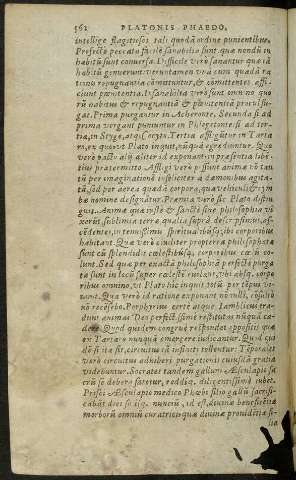 362 PLATONIS PHAEDO,
intellige flagitiosos tali quodā ordine punientibus.
Profectò peccata facilè sanabilia sunt quæ nondū in
habitū sunt conversa. Difficile verò sanantur quæ iā
habitū genuerunt: veruntamen una cum quadā ra
tionis repugnantia cōmittuntur, & cōmittentes affi
ciunt pœnitentia. Insanabilia verò sunt omnino quo
rū habitus & repugnantiā & pœnitentiā procul fu-
gat. Prima purgantur in Acheronte. Secunda si ad
prima vergant puniuntur in Phlegetonte, si ad ter-
tia, in Styge, atq; Cocyto. Tertia affligūtur in Tarta
ro, ex quo vt Plato inquit, nūquā egrediuntur. Qua
verò pacto alij aliter id exponant in præsentia liben-
tius prætermitto. Affligi verò possunt animæ nō tan
tū per imaginationē infeliciter à dæmonibus agita-
tā, sed per aerea quædā corpora, quæ vehiculū & vm
bræ nomine designatur. Præmia verò sic Plato distin
guit. Animæ quæ iustè & sanctè sine philosophia vi
xerūt, sublimia terræ qualia suprà descripsimus, as-
cedentes, in temissimis spiritualibusq; ibi corporibus
habitant. Quæ verò civiliter propterea philosophatæ
sunt eū splendidis cælestibusq; corporibus cœlū in co-
lunt. Sed quæ per exactā philosophiā perfectè purga
tæ sunt in locū super cælestē evolant, vbi absq; corpo
ribus omnino, vt Plato hic inquit totū per tēpus vi-
tant. Qua verò id ratione exponant nōnulli, cōsultò
nō recensebo. Porphyrius certè atque Iamblicus tra-
dunt animas Deo perfectissimè restitutas nūquā ca-
dere. Quod quidem congruè respondet oppositis quæ
ex Tartaro nunquā emergere iudicantur. Quid quo
dē si ita sit, circuitus iā assueti tollentur. Temporales
verò circuitus duobus purgationū cursibus granda
videbuntur. Socrates tandem gallum Æsculapio sa
crū se debere fatetur, reddiq; diligentissimè iubet.
Prisci Æsculapio medico Phœbi filio gallū sacrifi-
cabāt diei so lisq; nunciū, id est, divinæ beneficentiæ
morborū omniū curatrici quæ divinæ providētiæ fi-
lia